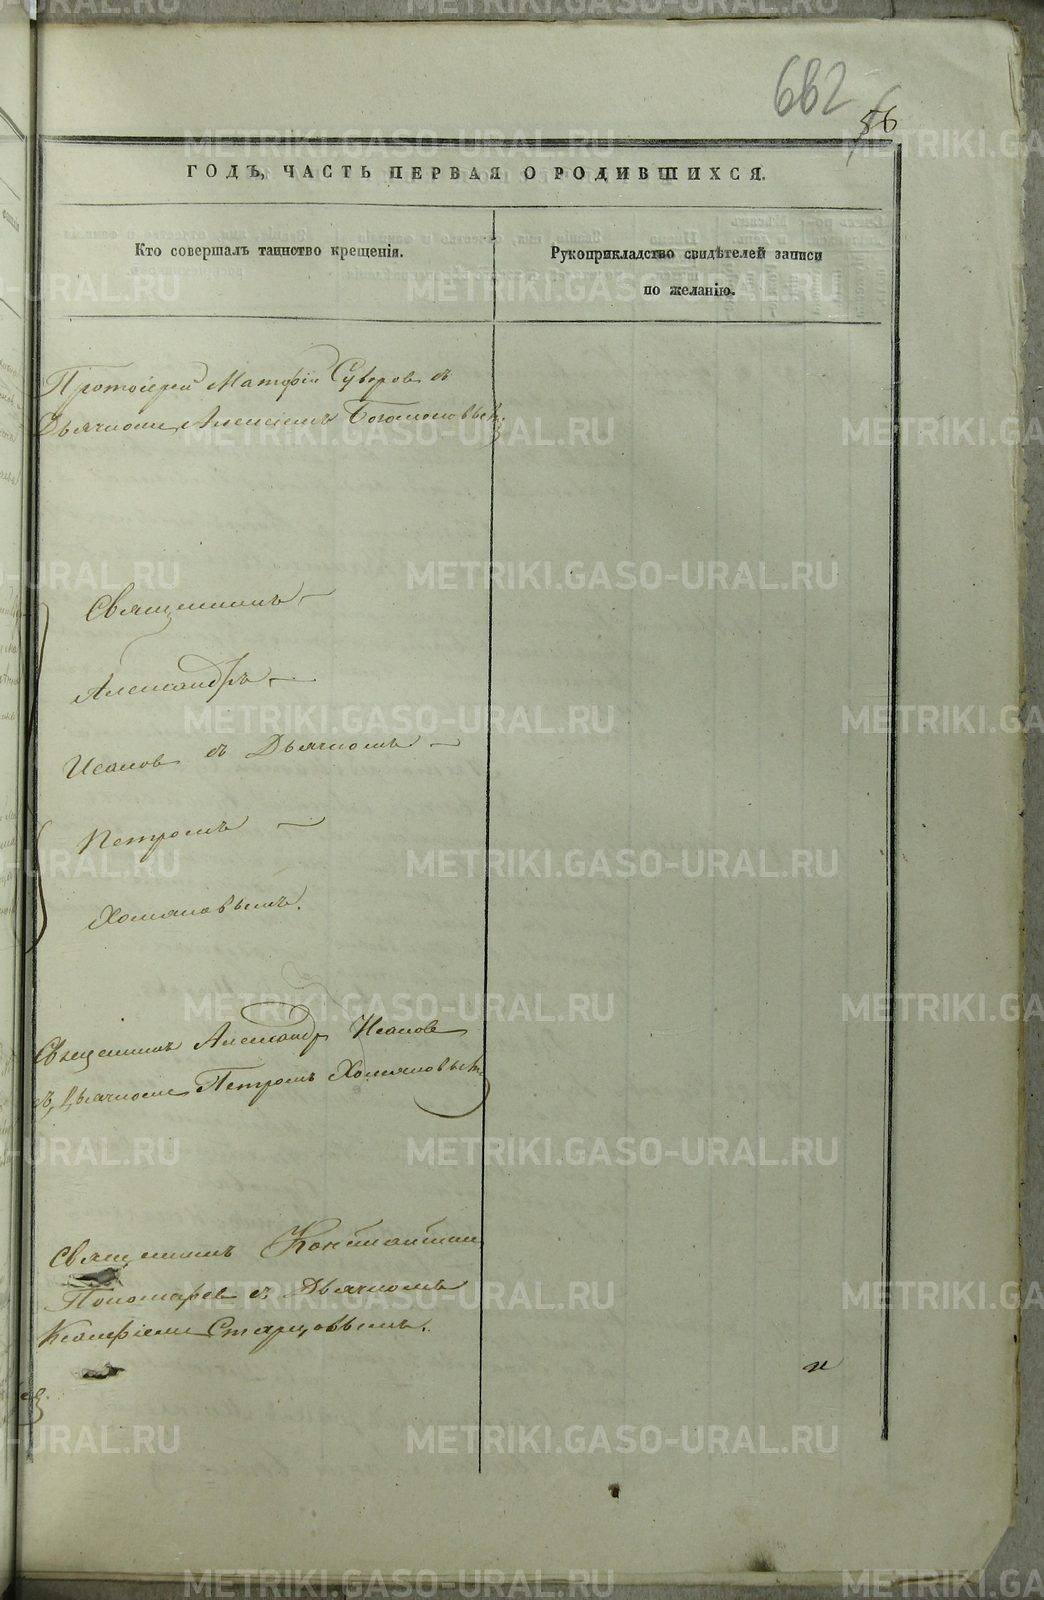 662
56
ГОДЪ, ЧАСТЬ ПЕРВАЯ О РОДИВШИХСЯ.
Кто совершалъ таинство крещенія.
Рукоприкладство свидѣтелей записи
по желанію.
Протоіерей Матфій Суворовъ съ
Дьячкомъ Алексіемъ Богомоловымъ.
Священникъ
Александръ
Исаковъ съ Дьячкомъ
Петромъ
Хомяковымъ.
Священникъ Александръ Исаковъ
съ Дьячкомъ Петромъ Хомяковымъ
Священникъ Константинъ
Пономаревъ съ Дьячкомъ
Старцовымъ.
и
METRIKI.GASO-URAL.RU